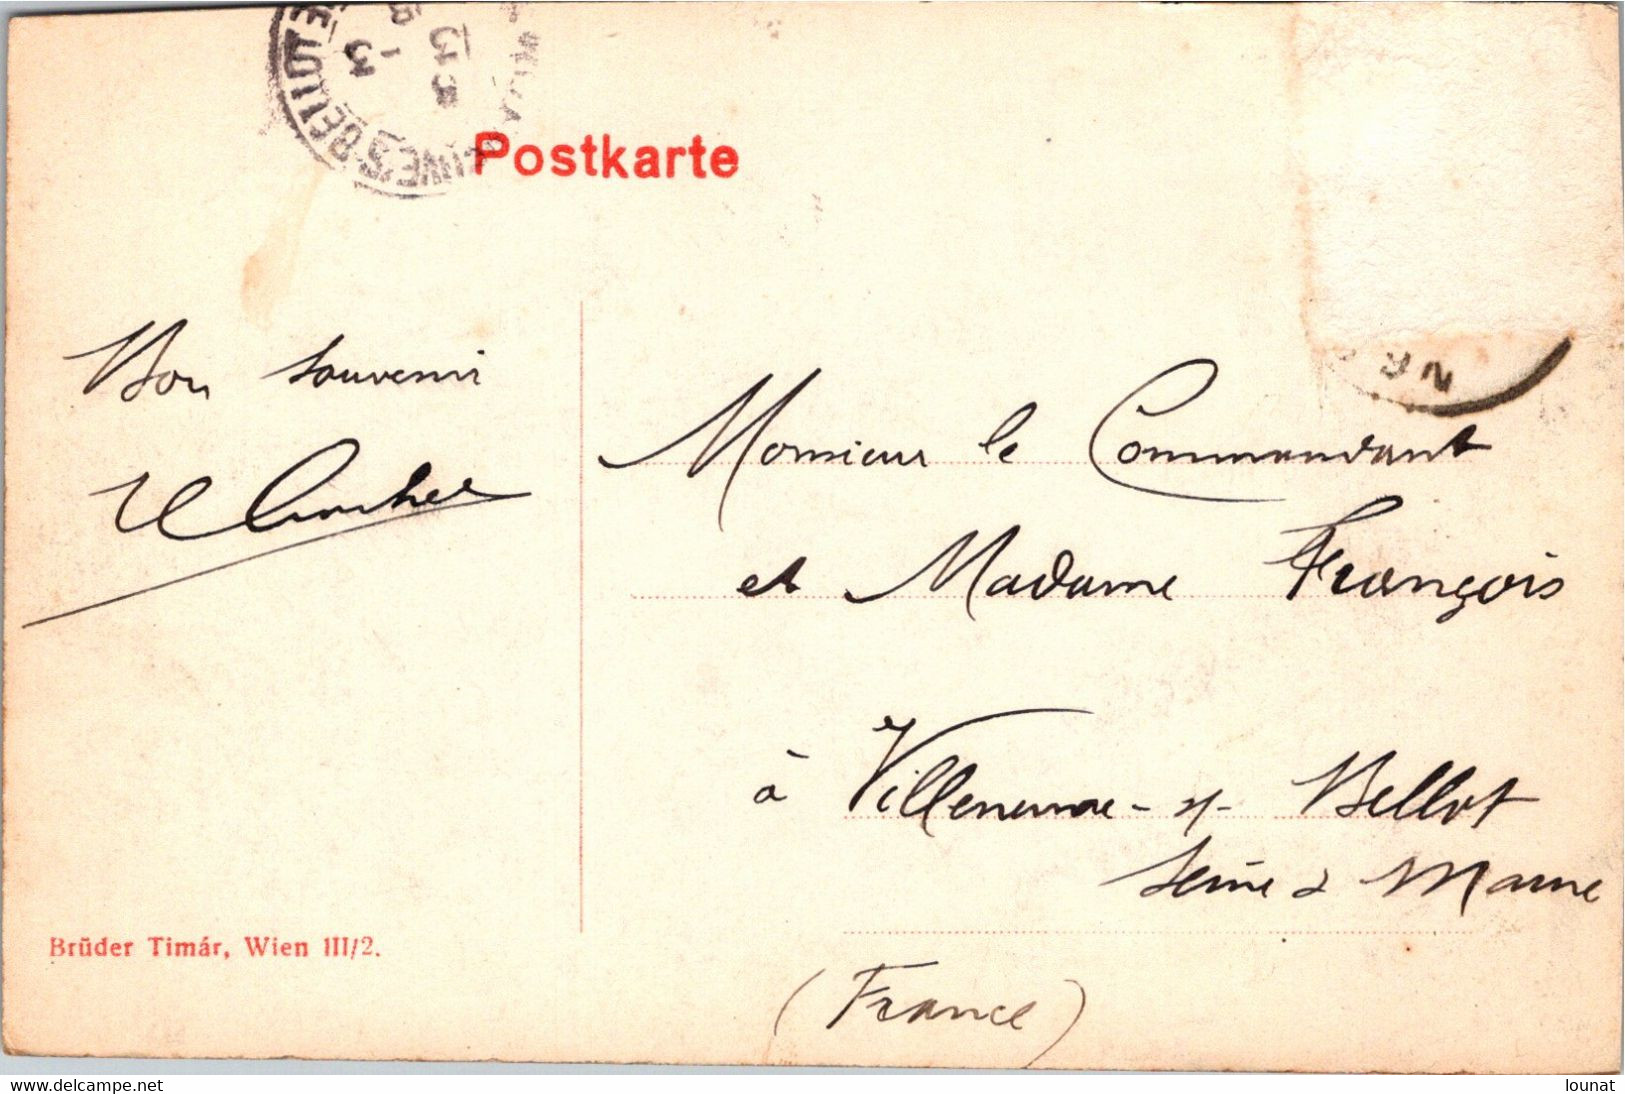 Postkarte
Bon souvenir
Monsieur le Commandant
et Madame François
à Villeneuve-s/- Bellot
Seine & Marne
(France)
Brüder Timár, Wien III/2.
Click to view larger picture
lounat